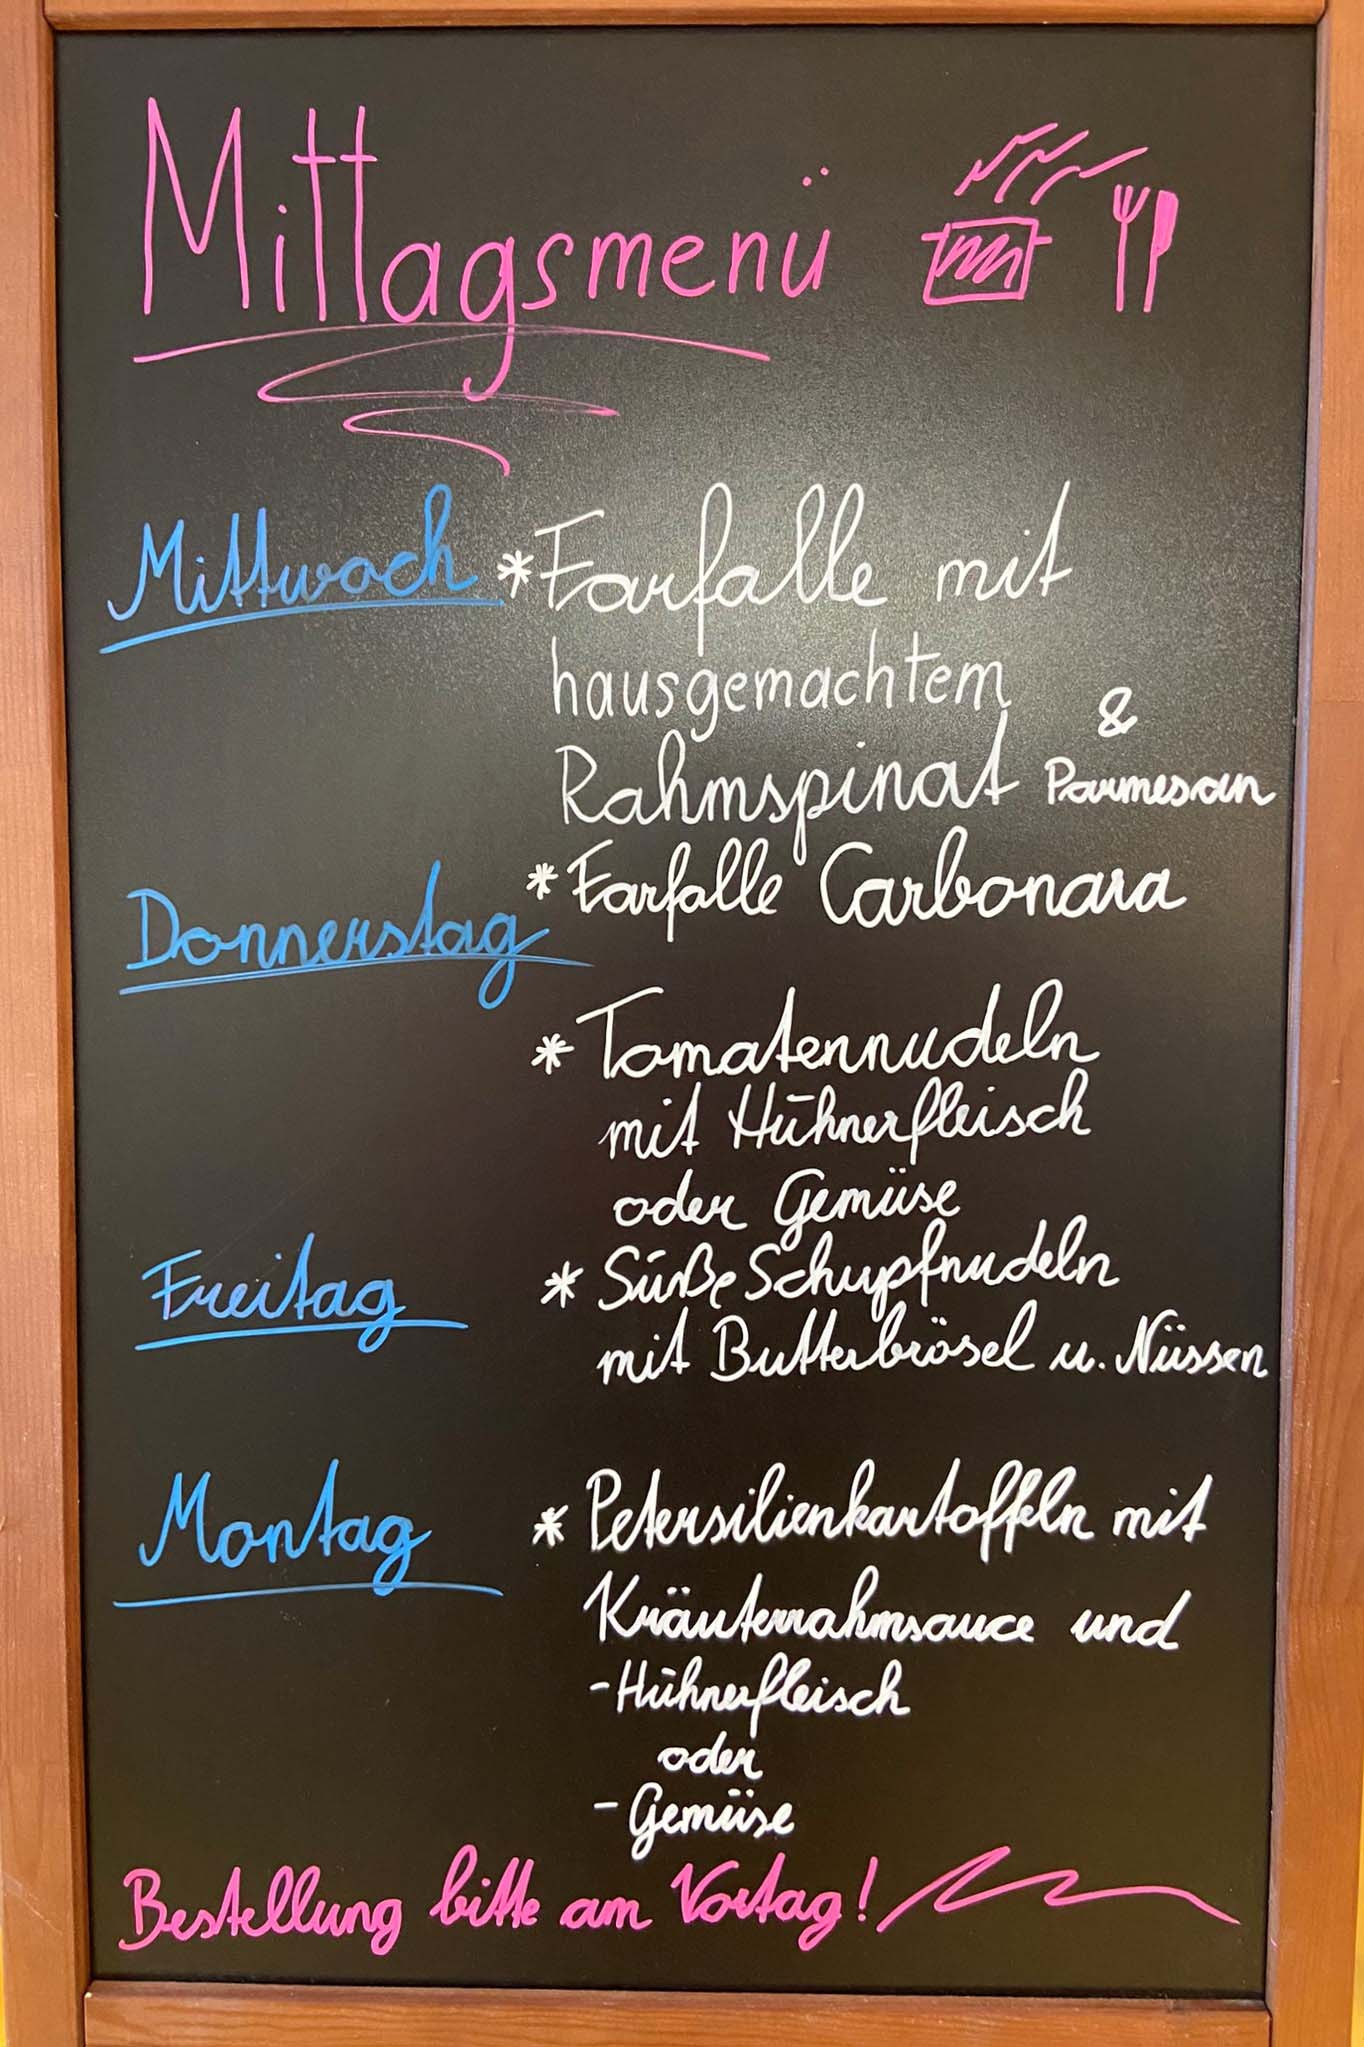 Mittagsmenü
Mittwoch * Farfalle mit
hausgemachtem
&
Rahmspinat Parmesan
* Farfalle Carbonara
Donnerstag
* Tomatennudeln
mit Hühnerfleisch
oder Gemüse
Freitag * Süße Schupfnudeln
mit Butterbrösel u. Nüssen
Montag * Petersilienkartoffeln mit
Kräuterrahmsauce und
- Hühnerfleisch
oder
- Gemüse
Bestellung bitte am Vortag!